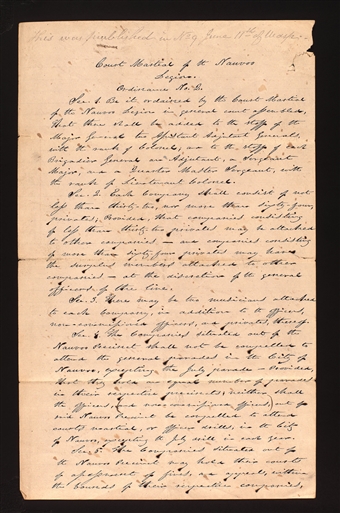 This was published in No 9 June 11th of Wasp.
Court Martial of the Nauvoo
Legion.
Ordinance No. 2.
Sec. 1. Be it ordained by the Court Martial
of the Nauvoo Legion in general court assembled,
That there shall be added to the staff of the
Major General two Assistant Adjutant Generals,
with the rank of Colonel, and to the staff of each
Brigadier General an Adjutant, a Sergeant
Major, and a Quarter Master Sergeant, with
the rank of Lieutenant Colonel.
Sec. 2. Each Company shall consist of not
less than thirty-two, nor more than sixty-four,
privates; Provided, that companies consisting
of less than thirty-two privates may be attached
to other companies — and companies consisting
of more than sixty-four privates may have
the surplus numbers attached to other
companies — at the discretion of the general
officers of the line.
Sec. 3. There may be two musicians attached
to each Company, in addition to the officers,
non-commissioned officers, and privates, thereof.
Sec. 4. The Companies situated out of the
Nauvoo Precinct shall not be compelled to
attend the general parades in the City of
Nauvoo, excepting the July parade — Provided,
that they hold an equal number of parades
in their respective precincts; neither shall
the officers, (and non-commissioned officers,) out of
said Nauvoo Precinct be compelled to attend
courts martial, or officer drills, in the City
of Nauvoo, excepting the July drill in each year.
Sec. 5. The Companies situated out of
the Nauvoo Precinct may hold their courts
of assessment of fines, and appeals, within
the bounds of their respective companies,